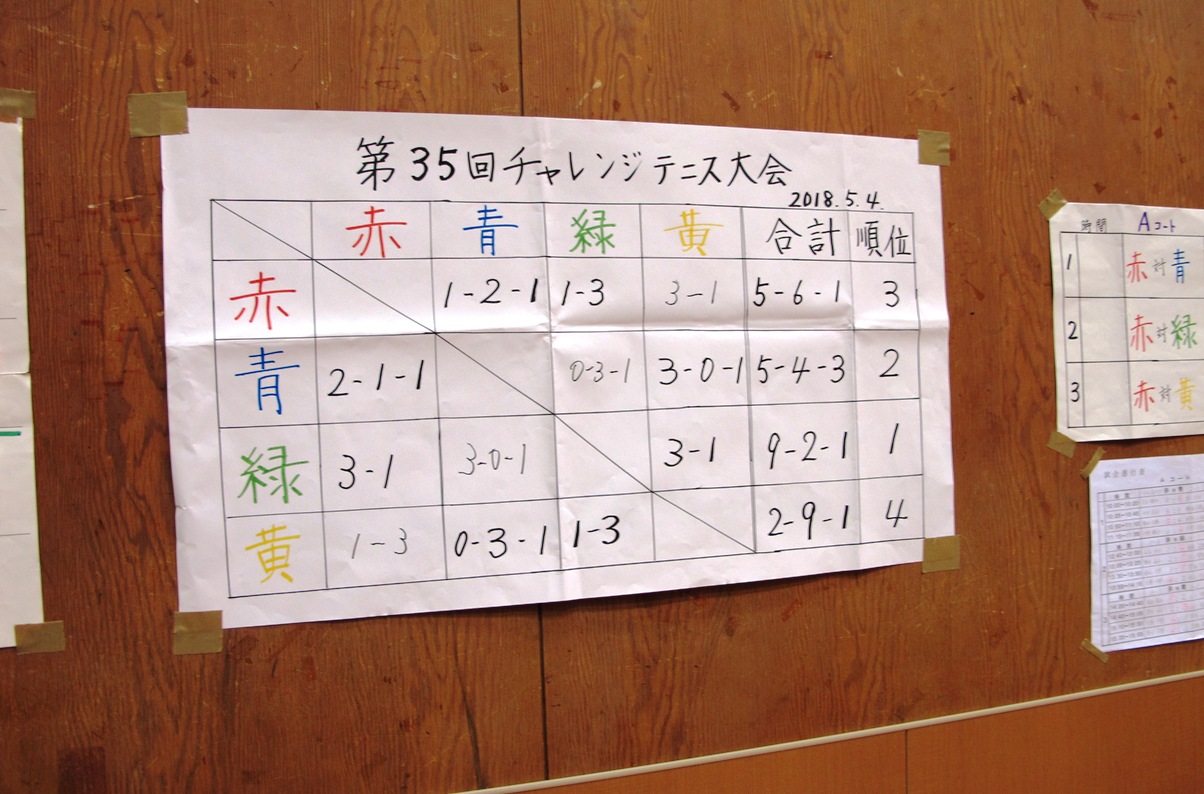 第35回チャレンジテニス大会
2018.5.4.
赤 青 緑 黄 合計 順位
赤 1-2-1 1-3 3-1 5-6-1 3
青 2-1-1 0-3-1 3-0-1 5-4-3 2
緑 3-1 3-0-1 3-1 9-2-1 1
黄 1-3 0-3-1 1-3 2-9-1 4
時間 Aコート
1 赤対青
2 赤対緑
3 赤対黄
Aコート